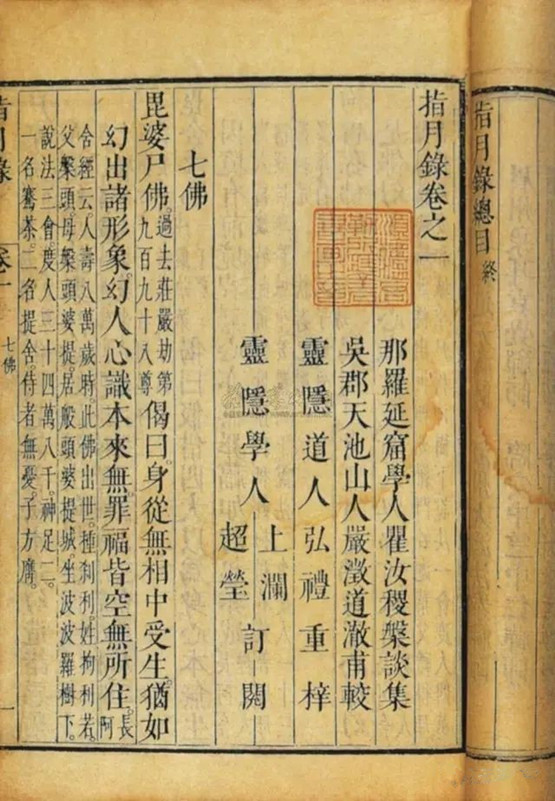 指月錄總目 終
指月錄卷之一
那羅延窟學人瞿汝稷槃談集
吳郡天池山人嚴澂道澈甫較
靈隱道人弘禮重梓
靈隱學人 上瀾 超瑩 訂閱
七佛
毘婆尸佛。過去莊嚴劫第九百九十八尊偈曰。身從無相中受生。猶如
幻出諸形象。幻人心識本來無。罪福皆空無所住。長阿
含經云。人壽八萬歲時。此佛出世。種剎利。姓拘利若。
父槃頭。母槃頭婆提。居般頭婆提城。坐波波羅樹下。
說法三會。度人三十四萬八千。神足二。
一名騫荼。二名提舍。侍者無憂。子方膺。
指月錄 卷一 七佛 一